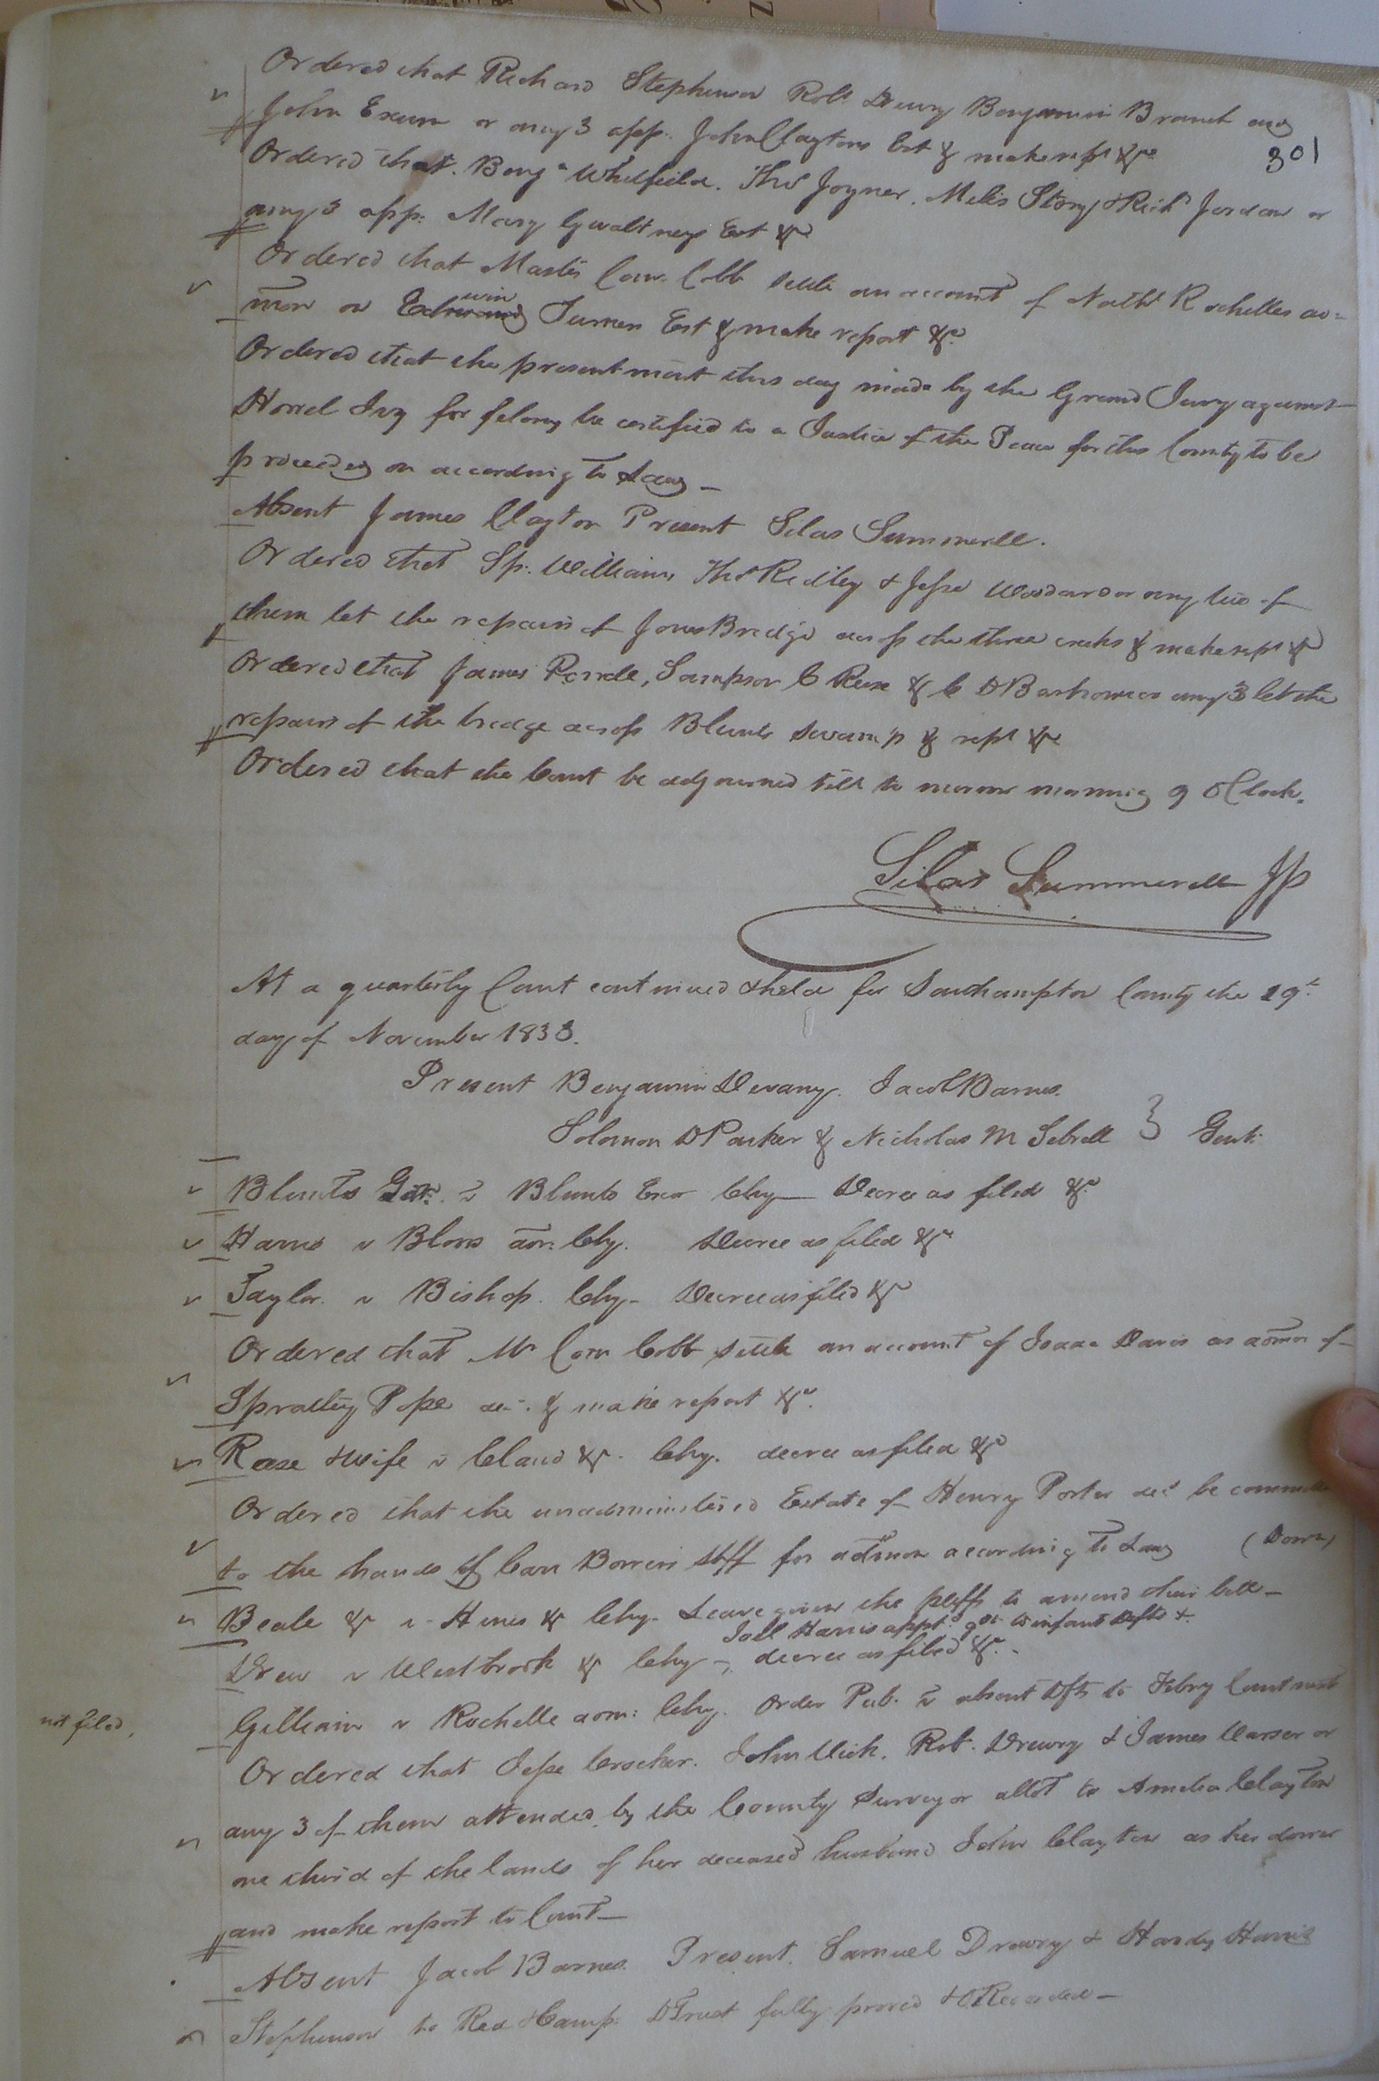 Ordered that Richard Stephenson Robt Drury Benjamin Branch and
John Exum or any 3 app. John Claytons Est & make rept &c
301
Ordered that Benja Whitfield. Ths Joyner. Miles Story & Richd Jordan or
any 3 app. Mary Gwaltneys Est &c
Ordered that Master Com. Cobb settle an account of Nathl Rochelles ad=
mon on Edwin Turner Est & make report &c
Ordered that the presentment this day made by the Grand Jury against
Horrel Ivy for felony be certified to a Justice of the Peace for this County to be
proceeded on according to Law
Absent James Clayton Present Silas Summerell.
Ordered that Sp. Williams Ths Ridley & Jesse Woodard or any two of
them let the repairs of Jones Bridge across the three creeks & make rept &c
Ordered that James Sampson C Reese & C D Barham or any 3 let the
repairs of the bridge across Blunts Swamp & rept &c
Ordered that the Court be adjourned till to morrow morning 9 OClock.
Silas Summerell JP
At a quarterly Court continued & held for Southampton County the 19th
day of November 1833.
Present Benjamin Devany. Jacob Barnes.
Solomon D Parker & Nicholas M Sebrell } Gent:
Blunts v Blunts Exor Chy — Decree as filed &c
Harris v Blows adm: Chy. Decree as filed &c
Taylor v Bishop. Chy - Decree as filed &c
Ordered that Mr Com Cobb settle an account of Isaac Davis as admor of
Spratley Pope dec. & make report &c.
Rose & wife v Claud &c. Chy. decree as filed &c
Ordered that the unadministered Estate of Henry Porter decd be committed
to the hands of Carr Bowers Shff for admon according to Law (Down)
Beale &c v Hines &c Chy - Leave given the plffs to amend their bill -
Joel Harris appt. gdn to infant defts &
Drew v Westbrook &c Chy - decree as filed &c. -
not filed,
Gilliam v Rochelle adm: Chy. Order Pub. v absent Dfts to Febry Court next
Ordered that Jesse Crocker. John Vick. Rob. Drewry & James Vaser or
any 3 of them attended by the County Surveyor allot to Amelia Clayton
one third of the lands of her deceased husband John Clayton as her dower
and make report to Court -
Absent Jacob Barnes. Present. Samuel Drewry & Hardy Harris
Stephenson to Rea & Camp. D Trust fully proved & O Recorded -